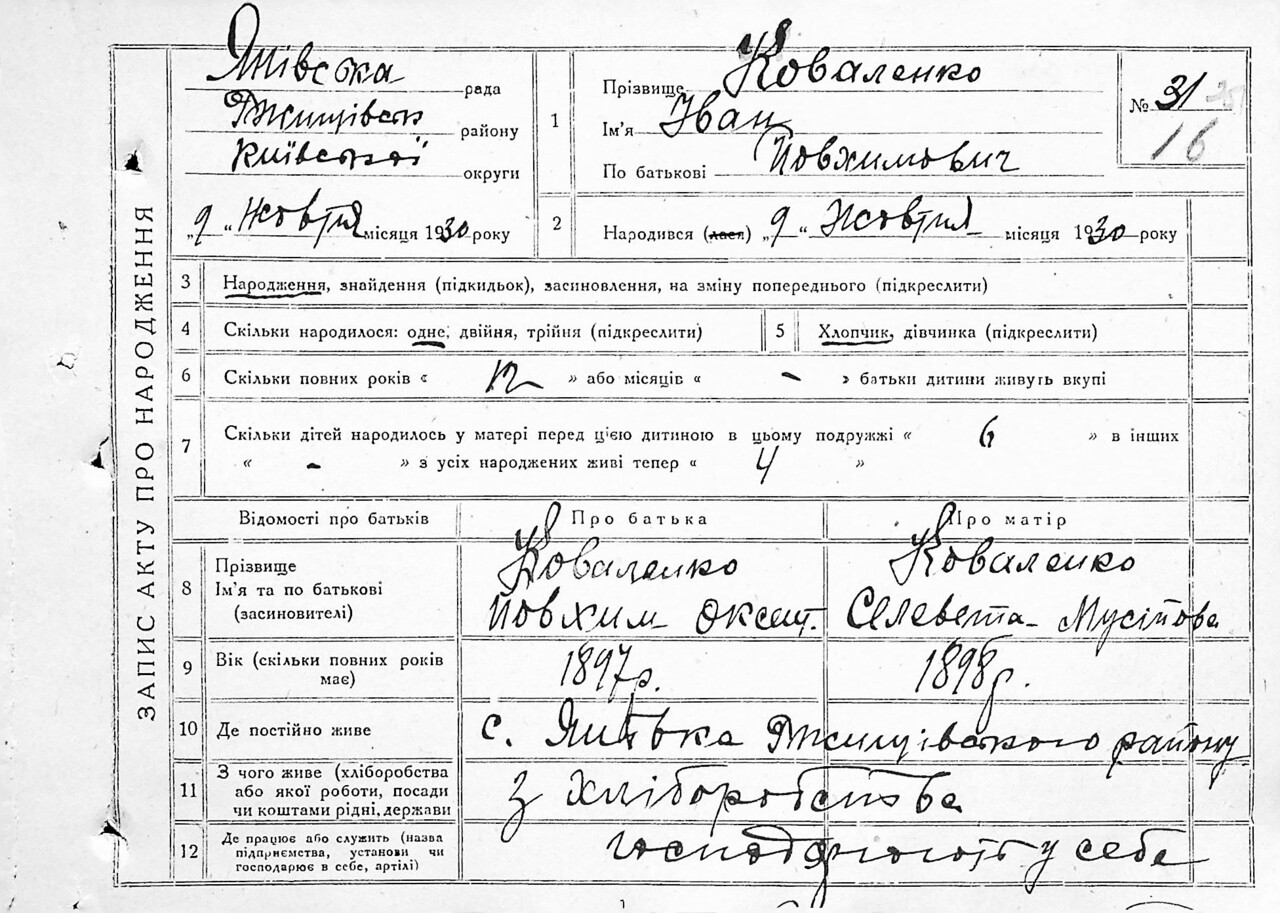 ЗАПИС АКТУ ПРО НАРОДЖЕННЯ
Янівська рада
Ржищівськ району
Київської округи
„9“ Жовтня місяця 1930 року
1 Прізвище Коваленко
Ім'я Іван
По батькові Йовхимович
№ 31
16
2 Народився (лася) „9“ Жовтня місяця 1930 року
3 Народження, знайдення (підкидьок), засиновлення, на зміну попереднього (підкреслити)
4 Скільки народилося: одне, двійня, трійня (підкреслити) 5 Хлопчик, дівчинка (підкреслити)
6 Скільки повних років « 12 » або місяців « - » батьки дитини живуть вкупі
7 Скільки дітей народилось у матері перед цією дитиною в цьому подружжі « 6 » в інших
« - » з усіх народжених живі тепер « 4 »
Відомості про батьків Про батька Про матір
8 Прізвище Коваленко Коваленко
Ім'я та по батькові
(засиновителі) Йовхим Оксент. Селевета Мусіїова
9 Вік (скільки повних років
має) 1897р. 1898р.
10 Де постійно живе с. Янівка Ржищівського району
11 З чого живе (хліборобства
або якої роботи, посади
чи коштами рідні, держави з хліборобства
12 Де працює або служить (назва
підприємства, установи чи
господарює в себе, артілі) господарюють у себе
1